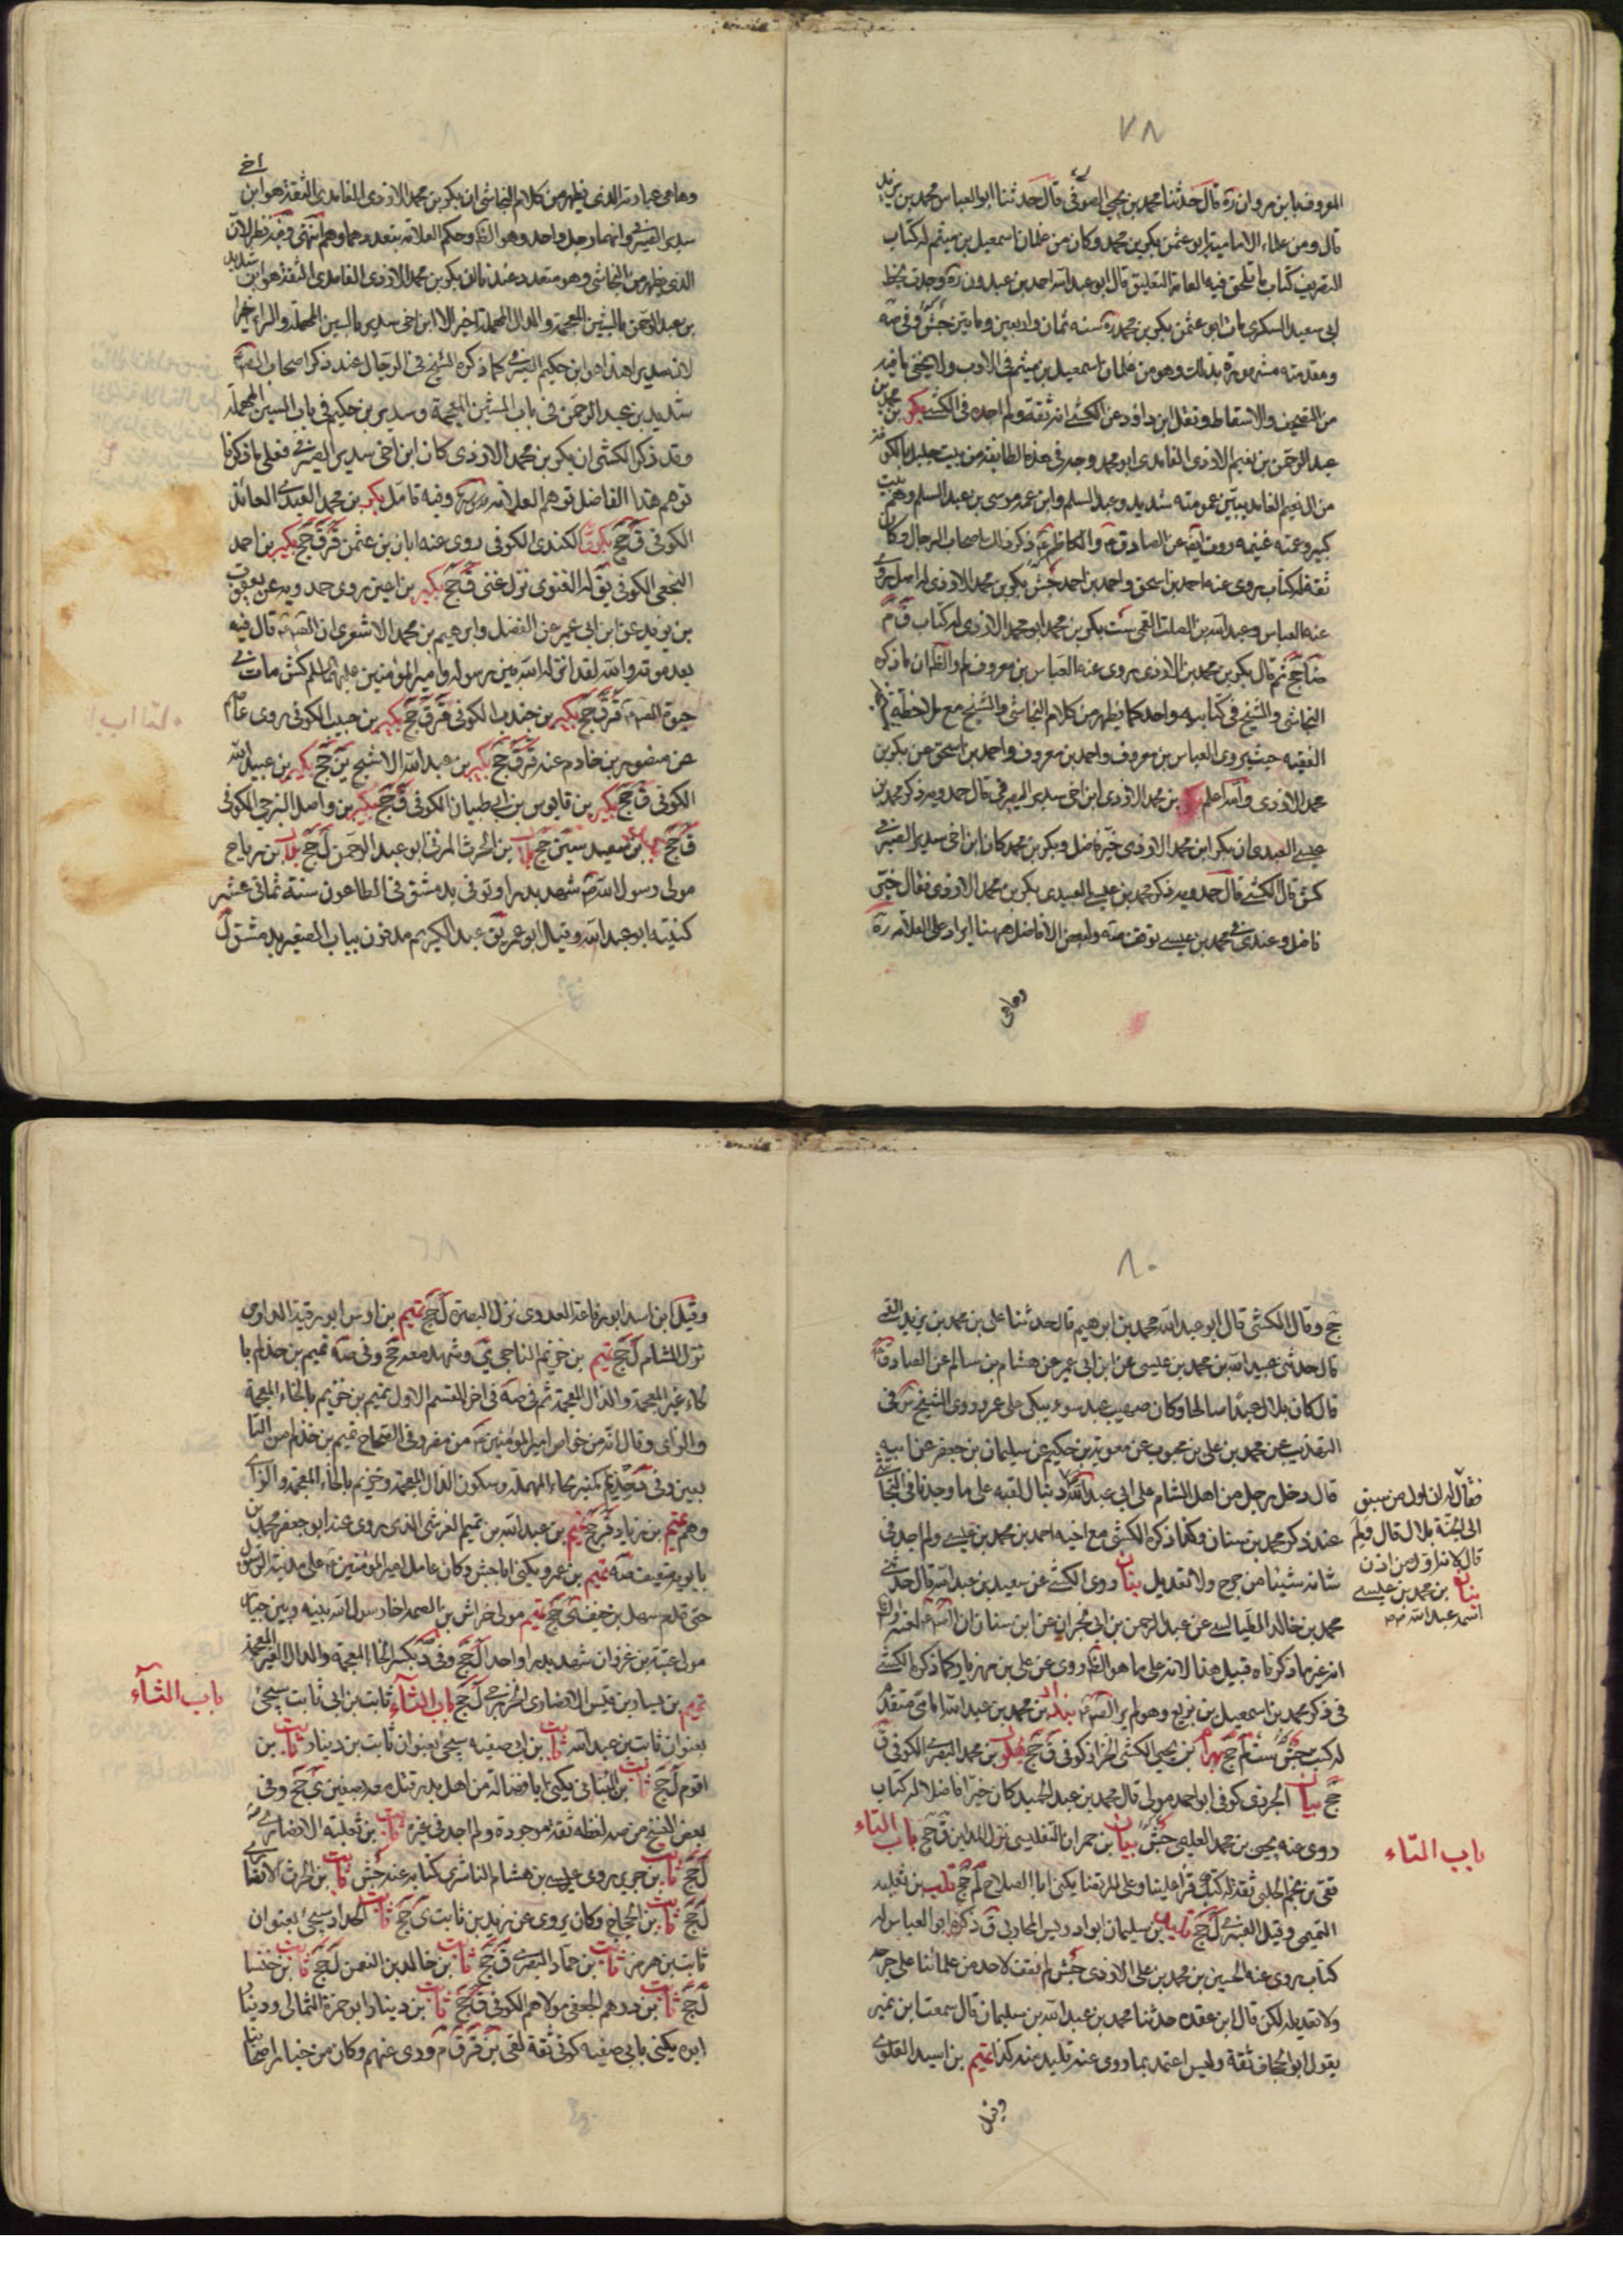 ٧٨
المعروف بابن مروان ره قال حدثنا محمد بن يحيى الصوفى قال حدثنا ابو العباس محمد بن يزيد
قال ومن علماء الامامية ابو عثمن بكر بن محمد وكان من غلمان اسمعيل بن ميثم له كتاب
التصريف كتاب ما تلحق فيه العامة التعليق قال ابو عبد الله احمد بن عبدون ره وجدت بخط
ابى سعيد السكرى مات ابو عثمن بكر بن محمد ره سنه ثمان واربعين ومايتين جش وفى صه
ومقدمته مشهورة بذلك وهو من غلمان اسمعيل بن ميثم فى الادب ولا يخفى ما فيه
من التصحيف والاسقاط ونقل ابن داود عن الكشى انه ثقة ولم اجده فى الكشى بكر بن محمد بن
عبد الرحمن بن نعيم الازدى الغامدى ابو محمد وجه فى هذه الطايفة من بيت جليل بالكوفة
من ال نعيم الغامديين عمومته شديد وعبد السلم وابن عمه موسى بن عبد السلم وهم بيت
كبير وعمته غنيمه روت ايضا عن الصادق والكاظم ذكر ذلك اصحاب الرجال وكان
ثقة له كتاب يروى عنه احمد بن اسحق واحمد بن احمد جش بكر بن محمد الازدى له اصل يروى
عنه العباس وعبد الله بن الصلت القمى ست بكر بن محمد ابو محمد الازدى له كتاب ق م
ضا جخ ثم قال بكر بن محمد بن الازدى يروى عنه العباس بن معروف لم والظ ان ما ذكره
النجاشى والشيخ فى كتابيه واحد كما يظهر من كلام النجاشى والشيخ مع ملاحظة
الفقيه حيث يروى العباس بن معروف واحمد بن معروف واحمد بن اسحق عن بكر بن
محمد الازدى والله اعلم بكر بن محمد الازدى ابن اخى سدير الصيرفى قال حمدويه ذكر محمد بن
عيسى العبيدى ان بكر ابن محمد الازدى خير فاضل وبكر بن محمد كان ابن اخى سدير الصيرفى
كش قال الكشى قال حمدويه ذكر محمد بن عيسى العبيدى بكر بن محمد الازدى فقال خير
فاضل وعندى فى محمد بن عيسى توقف صه ولبعض الافاضل ههنا ايراد على العلامه ره
وهاهى
وهاهى عبارته الذى يظهر من كلام النجاشى ان بكر بن محمد الازدى الغامدى الثقة هو ابن اخى
سدير الصيرفى وانهما رجل واحد وهو الظ وحكم العلامة بتعددهما وهم انتهى وفيه نظر لان
الذى يظهر من النجاشى وهو متعدد عنده فان بكر بن محمد الازدى الغامدى الثقة هو ابن شديد
بن عبد الرحمن بالشين المعجمة والدال المهملة اخيرا لا ابن اخى سدير بالسين المهملة والراء اخيرا
لان سدير اهذا هو ابن حكيم الصيرفى كما ذكره الشيخ فى الرجال عند ذكر اصحاب الصادق
شديد بن عبد الرحمن فى باب الشين المعجمة وسدير بن حكيم فى باب السين المهملة
وقد ذكر الكشى ان بكر بن محمد الازدى كان ابن اخى سدير الصيرفى فعلى ما ذكرنا
توهم هذا الفاضل توهم العلامة وفيه تامل بكر بن محمد العبدى العائذ
الكوفى ق جخ بكر الكندى الكوفى روى عنه ابان بن عثمن قر ق جخ بكير بن احمد
النخعى الكوفى يق له الغنوى نزل غنى ق جخ بكير بن اعين روى حمدويه عن يعقوب
بن يزيد عن ابن ابى عمير عن الفضل وابرهيم بن محمد الاشعرى ان الصادق قال فيه
بعد موته والله لقد انزله الله بين رسوله وامير المؤمنين عليهما السلم كش مات فى
حيوة الصادق قر ق جخ بكير بن جندب الكوفى قر ق جخ بكير بن حبيب الكوفى روى عاصم
عن منصور بن حازم عنه قر ق جخ بكير بن عبد الله الاشج ين جخ بكير بن عبيد الله
الكوفى ق جخ بكير بن قابوس بن ابى ظبيان الكوفى ق جخ بكير بن واصل البرجمى الكوفى
ق جخ بن سعيد سين جخ بلال بن الحرث المزنى ابو عبد الرحمن ل جخ بلال بن رباح
مولى رسول الله شهد بدرا وتوفى بدمشق فى الطاعون سنة ثمانى عشر
كنيته ابو عبد الله وقيل ابو عمر يق عبد الكريم مدفون بباب الصغير بدمشق ل
٨٠
جخ وقال الكشى قال ابو عبد الله محمد بن ابرهيم قال حدثنا على بن محمد بن يزيد القمى
قال حدثنى عبد الله بن محمد بن عيسى عن ابن ابى عمير عن هشام بن سالم عن الصادق
قال كان بلال عبدا صالحا وكان صهيب عبد سوء يبكى على عمر وروى الشيخ ره فى
التهذيب عن محمد بن على بن محبوب عن معوية بن حكيم عن سليمان بن جعفر عن ابيه
قال دخل رجل من اهل الشام على ابى عبد الله بنان لقبه على ما وجدنا فى النجاشى
عند ذكر محمد بن سنان وكذا ذكره الكشى مع اخيه احمد بن محمد بن عيسى ولم اجد فى
شانه شيئا من جرح ولا تعديل بنان روى الكشى عن سعيد بن عبد الله قال حدثنى
محمد بن خالد الطيالسى عن عبد الرحمن بن ابى نجران عن ابن سنان ان الصادق لعنه والظ
انه غير ما ذكرناه قبيل هذا لانه على ما هو الظ روى عن على بن مهزيار وكما ذكره الكشى
فى ذكر محمد بن اسمعيل بن بزيع وهو لم ير الصادق بندار بن محمد بن عبد الله امامى متقدم
له كتب جش ست لم جخ بهرام بن يحيى الكشى الخزاز كوفى ق جخ بهلول بن محمد البصرى الكوفى ق
جخ بيان الجزرى كوفى ابو احمد مولى قال محمد بن عبد الحميد كان خيرا فاضلا له كتاب
روى عنه يحيى بن محمد العليمى جش بيان بن حمران التفليسى نزل المداين ق جخ باب التاء
تقى بن نجم الحلبى ثقة له كتب قرأ علينا وعلى المرتضى يكنى ابا الصلاح لم جخ تلب بن ثعلبه
التميمى وقيل العنبرى ل جخ تليد بن سليمان ابو ادريس المحاربى ق ذكره ابو العباس له
كتاب يروى عنه الحسين بن محمد بن على الازدى جش لم نقف لاحد من علمائنا على جرحه
ولا تعديله لكن قال ابن عقده حدثنا محمد بن عبد الله بن سليمان قال سمعت ابن نمير
يقول ابو الجحاف ثقة وليس اعتمد بما روى عنه تليد صه كذا تميم بن اسيد العدوى
وقيل
فقال له ان اول من سبق
الى الجنة بلال قال ولم
قال لانه اول من اذن
بنان بن محمد بن عيسى
اسمه عبد الله
باب التاء
وقيل ابن اسد ابو رفاعة العدوى نزل البصرة ل جخ تميم بن اوس ابو رقية الدارى
نزل الشام ل جخ تميم بن خزيم الناجى ى وشهد معه جخ وفى صه تميم بن حذلم با
لحاء غير المعجمة والذال المعجمة ثم فى صه فى اخر القسم الاول تميم بن خزيم بالخاء المعجمة
والزاى وقال انه من خواص امير المؤمنين من مضر وفى الصحاح تميم بن حذلم من التا
بعين وفى حذيم كمنبر بحاء المهملة وسكون الذال المعجمة وخزيم بالخاء المعجمة والزاى
وهم تميم بن زياد ق جخ تميم بن عبد الله بن تميم القرشى الذى روى عنه ابو جعفر محمد بن
بابويه ضعيف صه تميم بن عمرو يكنى ابا حبش وكان عامل امير المؤمنين على مدينة الرسول
حتى قدم سهل بن حنيف ى جخ تميم مولى خراش بن الصمة اخا رسول الله بينه وبين خباب
مولى عتبة بن غزوان شهد بدرا واحدا ل جخ وفى د بكسر الخاء المعجمة والدال الغير المعجمة
تميم بن يسار بن قيس الانصارى الخزرجى ل جخ باب الثاء ثابت بن ابى ثابت سيجئ
بعنوان ثابت بن عبد الله ثابت بن ابى صفيه سيجئ بعنوان ثابت بن دينار ثابت بن
اقوم ل جخ ثابت بن البنانى يكنى ابا فضالة من اهل بدر قتل معه بصفين ى جخ وفى
بعض النسخ من صه لفظه ثقة موجودة ولم اجد فى غيره ثابت بن ثعلبة الانصارى
ل جخ ثابت بن جرير روى عبيس بن هشام الناشرى كتابه عنه جش ثابت بن الحرث الانصارى
ل جخ ثابت بن الحجاج وكان يروى عن زيد بن ثابت ى جخ ثابت الحداد سيجئ بعنوان
ثابت بن هرمز ثابت بن حماد البصرى ق جخ ثابت بن خالد بن النعمن ل جخ ثابت بن خنسا
ل جخ ثابت بن درهم الجعفى مولاهم الكوفى ق جخ ثابت بن دينار ابو حمزة الثمالى ودينار
ابوه يكنى بابى صفيه كوفى ثقة لقى ين قر ق م وروى عنهم وكان من خيار اصحابنا
باب الثاء